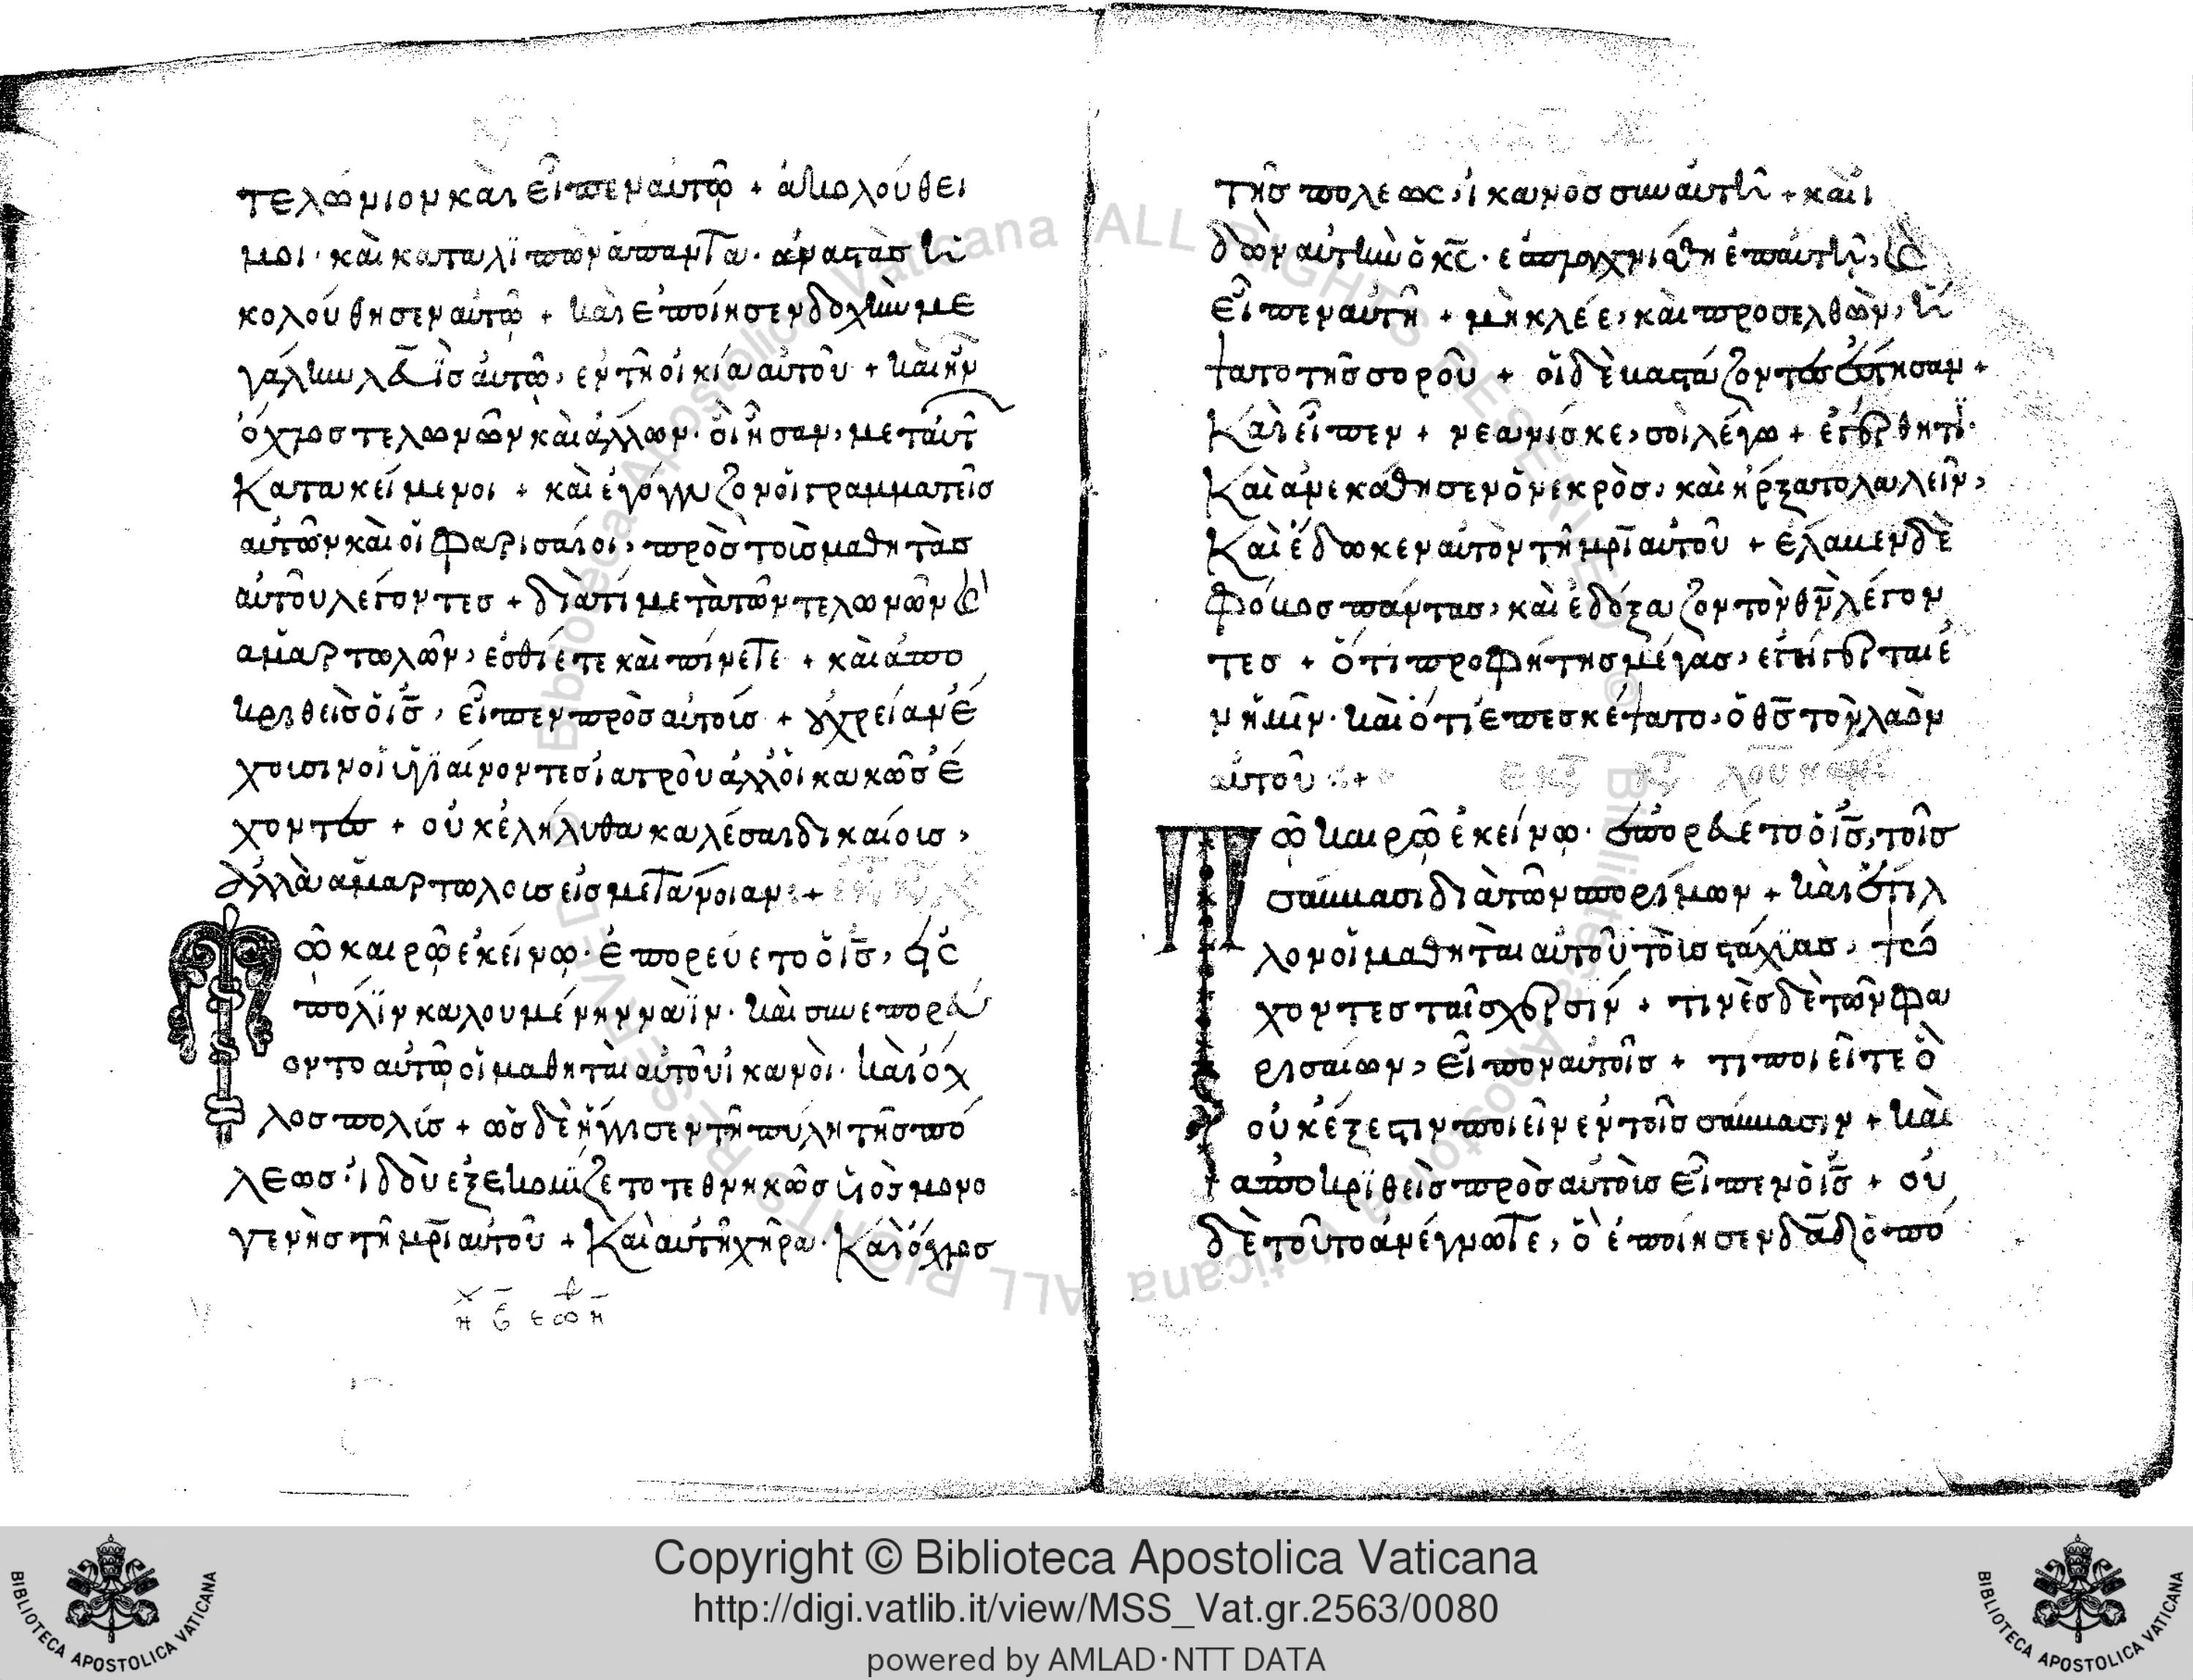 τελώνιον καὶ εἶπεν αὐτῶ + ἀκολούθει
μοι· καὶ καταλϊπὼν ἅπαντα· ἀναστὰς ἠ
κολούθησεν αὐτῶ + καὶ ἐποίησεν δοχὴν με
γάλην λευῒς αὐτῶ, ἐν τῆ οἰκία αὐτοῦ + καὶ ἦν
ὄχλος τελωνῶν καὶ ἄλλων· οἳ ἦσαν, μετ αὐτ
κατακείμενοι + καὶ ἐγόγγυζον οἱ γραμματεῖς
αὐτῶν καὶ οἱ φαρισαῖοι, πρὸς τοῖς μαθητὰς
αὐτοῦ λέγοντες + διὰ τί μετὰ τῶν τελωνῶν κ
αμαρτωλῶν, ἐσθίετε καὶ πίνετε + καὶ ἀπο
κριθεὶς ὁ ις, εἶπεν πρὸς αὐτοίς + ου χρείαν ἔ
χουσιν οἱ ὑγϊαίνοντες ἰατροῦ ἀλλ οἱ κακῶς ἔ
χοντες + οὐκ ἐλήλυθα καλέσαι δικαίοις,
ἀλλὰ αμαρτωλοις εἰς μετάνοιαν +
ῶ καιρῶ ἐκείνω· ἐπορεύετο ὁ ις, εἰς
πόλϊν καλουμένην ναΐν· καὶ συνεπορεύ
οντο αὐτῶ οἱ μαθηταὶ αὐτοῦ ἱκανοὶ· καὶ ὄχ
λος πολίς + ὡς δὲ ἤγγισεν τῆ πύλη τῆς πό
λεως· ἰδοὺ ἐξεκομϊζετο τεθνηκῶς ϋἱὸς μονο
γενὴς τῆ μρι αὐτοῦ + Καὶ αὐτὴ χῆρα· Καὶ ὄχλος
τῆς πόλεως, ἱκανὸς σὺν αὐτῆ + καὶ ἰ
δὼν αὐτὴν ὁ κς· ἐσπλαγχνίσθη ἐπ αὐτῆ, κ
εἶπεν αὐτῆ + μὴ κλέε, καὶ προσελθὼν, ἥ
ψατο τῆς σοροῦ + οἱ δὲ βαστάζοντες ἔστησαν +
Καὶ εἶπεν + νεανίσκε, σοὶ λέγω + ἐγέρθητϊ·
Καὶ ἀνεκάθησεν ὁ νεκρὸς, καὶ ἤρξατο λαλεῖν,
Καὶ ἔδωκεν αὐτὸν τῆ μρι αὐτοῦ + ἔλαβεν δὲ
φόβος πάντας, καὶ ἐδόξαζον τὸν θν λέγον
τες + ὅτι προφήτης μέγας, ἐγήγερται ἐ
ν ἡμῖν· καὶ ὅτι ἐπεσκέψατο, ὁ θς τὸν λαὸν
αὐτοῦ +
ῶ καιρῶ ἐκείνω· ἐπορεύετο ὁ ις, τοῖς
σάββασι διὰ τῶν πορίμων + καὶ ἔτιλ
λον οἱ μαθηταὶ αὐτοῦ τοὶς στάχϊας, ψώ
χοντες ταῖς χερσίν + τινὲς δὲ τῶν φα
ρισαίων, εἶπον αὐτοῖς + τι ποιεῖτε ὃ
οὐκ ἔξεστιν ποιεῖν ἐν τοῖς σάββασιν + καὶ
ἀποκρϊθεὶς πρὸς αὐτοὶς εἶπεν ὁ ις + οὐ
δὲ τοῦτο ἀνέγνωτε, ὃ ἐποίησεν δαδ ὁπό
Copyright © Biblioteca Apostolica Vaticana
http://digi.vatlib.it/view/MSS_Vat.gr.2563/0080
powered by AMLAD·NTT DATA
BIBLIOTECA APOSTOLICA VATICANA
BIBLIOTECA APOSTOLICA VATICANA